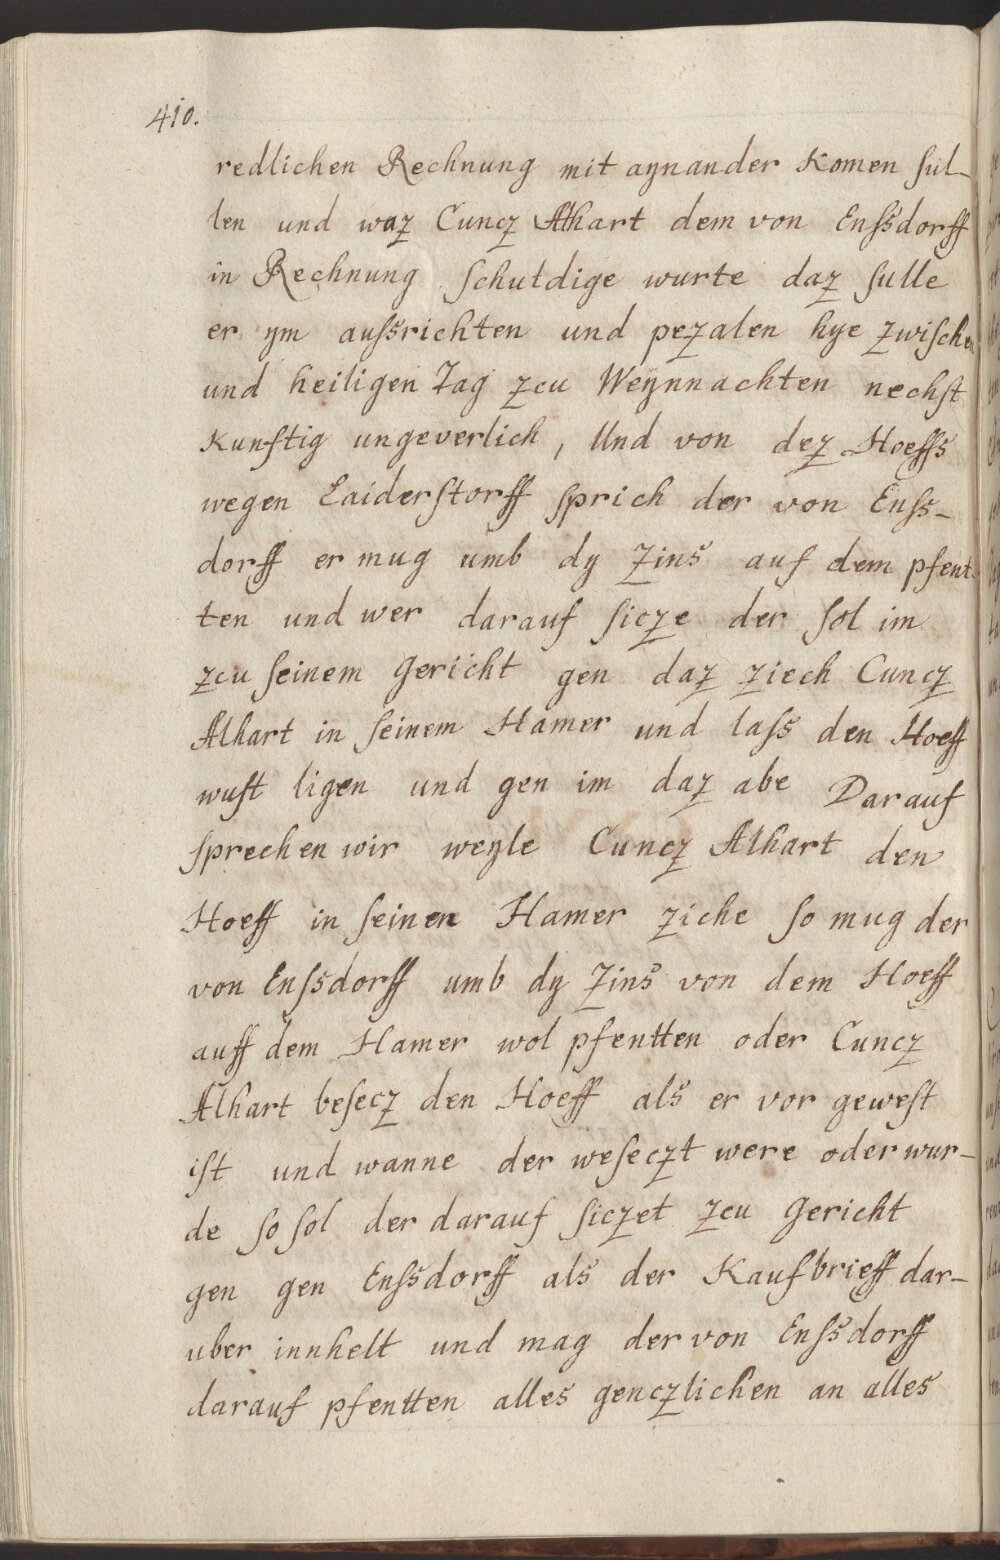 410.
redlichen Rechnung mit aynander Komen ſul-
len und waz Cuncz Alhart dem von Enſsdorff
in Rechnung ſchuldige wurte daz ſulle
er ym auſsrichten und pezalen hye zwiſchen
und heiligen Tag zcu Weynnachten nechſt
Kunftig ungeverlich, Und von dez Hoeffs
wegen Laiderſtorff ſprich der von Enſs-
dorff er mug umb dy Zins auf dem pfent
ten und wer darauf ſicze der ſol im
zcu ſeinem Gericht gen daz ziech Cuncz
Alhart in ſeinem Hamer und laſs den Hoeff
wuſt ligen und gen im daz abe Darauf
ſprechen wir weyle Cuncz Alhart den
Hoeff in ſeinen Hamer ziche ſo mug der
von Enſsdorff umb dy Zins von dem Hoeff
auff dem Hamer wol pfentten oder Cuncz
Alhart beſecz den Hoeff als er vor geweſt
iſt und wanne der weſeczt were oder wur-
de ſo ſol der darauf ſiczet zcu Gericht
gen gen Enſsdorff als der Kaufbrieff dar-
uber innhelt und mag der von Enſsdorff
darauf pfentten alles genczlichen an alles